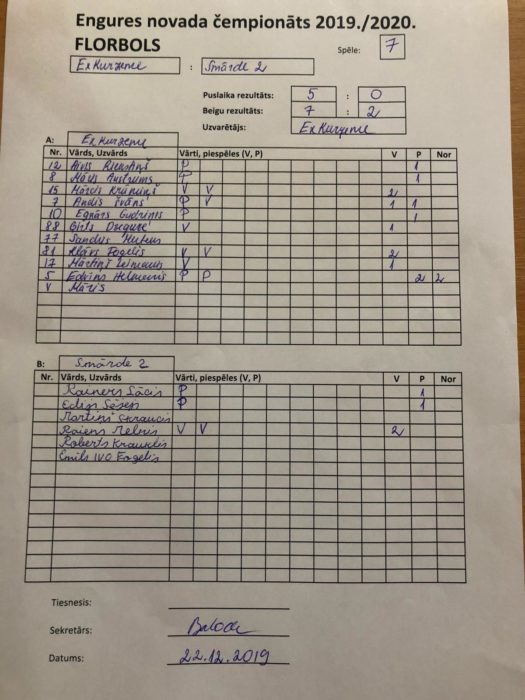 Engures novada čempionāts 2019./2020.
FLORBOLS
Spēle: 7
ExKurzeme : Smārde 2
Puslaika rezultāts: 5 : 0
Beigu rezultāts: 7 : 2
Uzvarētājs: ExKurzeme
A: ExKurzeme
Nr. Vārds, Uzvārds Vārti, piespēles (V, P) V P Nor
12 Aivis P 1
8 Māris Austrums P 1
15 Mārcis Krūmiņš V V 2
7 Andis Īvāns P V 1 1
10 Egnārs Gudriņis P 1
88 Ģirts V 1
77 Sandijs
81 Klāvs Fogelis V V 2
17 Mārtiņš V 1
5 Edvīns P P 2 2
V Māris
B: Smārde 2
Nr. Vārds, Uzvārds Vārti, piespēles (V, P) V P Nor
Rainers Lācis P 1
P 1
Mārtiņš Strauces
V V 2
Roberts Krauklis
Emīls IVO Fogelis
Tiesnesis:
Sekretārs:
Datums: 22.12.2019